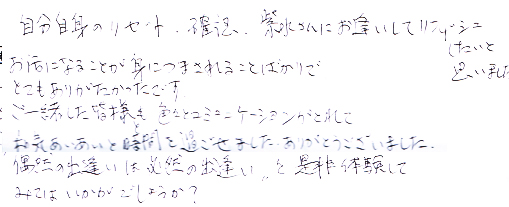 自分自身のリセット、確認、紫水さんにお逢いしてリフレッシュ
したいと
思いました
お話になることが身につまされることばかりで
とてもありがたかったです。
ご一緒した皆様も色々とコミュニケーションがとれて
和気あいあいと時間を過ごせました。ありがとうございました。
偶然の出逢いは必然の出逢い、と是非体験して
みてはいかがでしょうか?